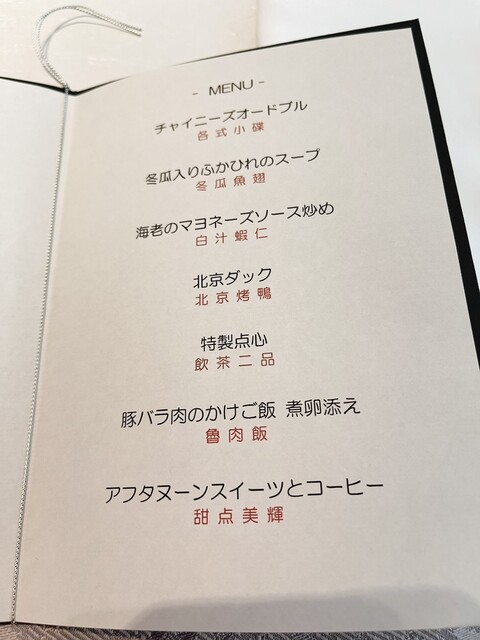 - MENU -
チャイニーズオードブル
各式小碟
冬瓜入りふかひれのスープ
冬瓜魚翅
海老のマヨネーズソース炒め
白汁蝦仁
北京ダック
北京烤鴨
特製点心
飲茶二品
豚バラ肉のかけご飯 煮卵添え
魯肉飯
アフタヌーンスイーツとコーヒー
甜点美輝